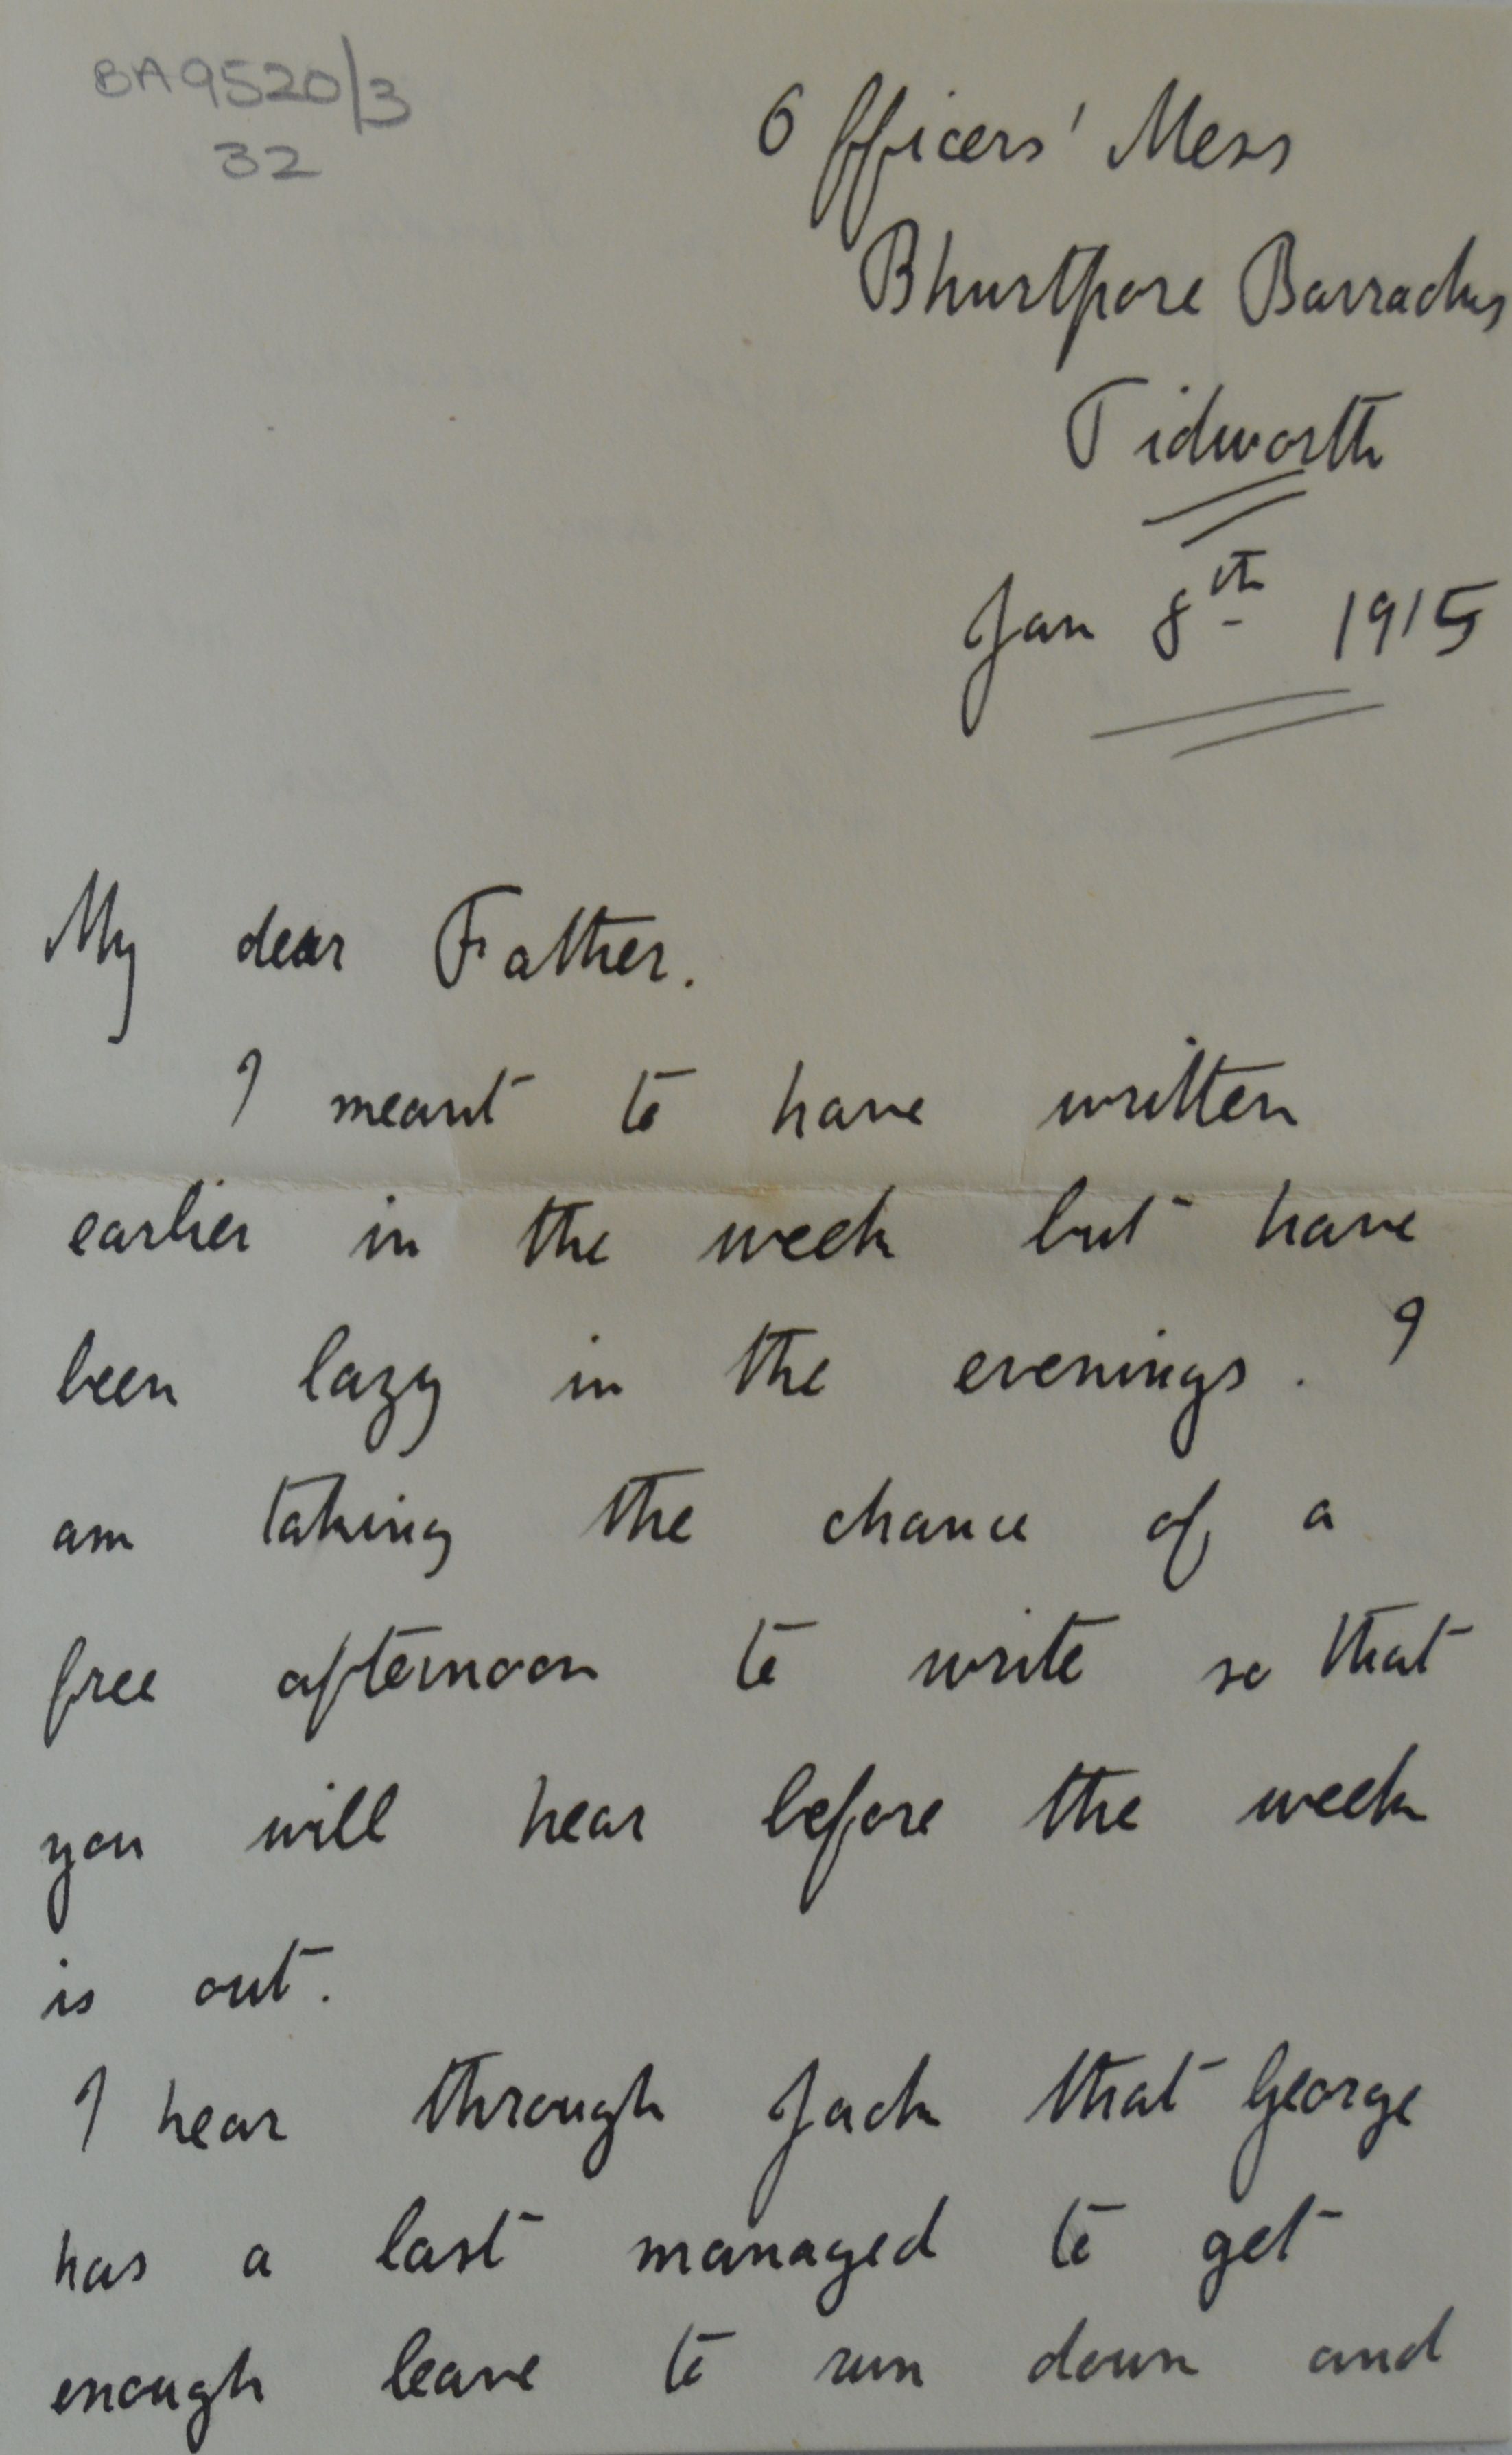 BA9520/3
32
Officers' Mess
Bhurtpore Barracks
Tidworth
Jan 8th 1915
My dear Father.
I meant to have written
earlier in the week but have
been lazy in the evenings. I
am taking the chance of a
free afternoon to write so that
you will hear before the week
is out.
I hear through Jack that George
has a last managed to get
enough leave to run down and